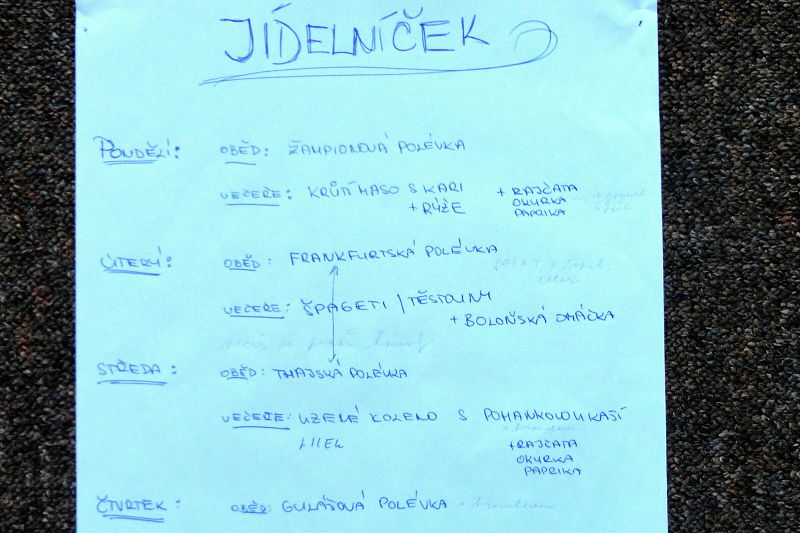 JÍDELNÍČEK
PONDĚLÍ: OBĚD: ŽAMPIONOVÁ POLÉVKA
VEČEŘE: KRŮTÍ MASO S KARI + RAJČATA
+ RÝŽE OKURKA
PAPRIKA
ÚTERÝ: OBĚD: FRANKFURTSKÁ POLÉVKA
VEČEŘE: ŠPAGETI / TĚSTOVINY
+ BOLOŇSKÁ OMÁČKA
STŘEDA: OBĚD: THAJSKÁ POLÉVKA
VEČEŘE: UZENÉ KOLENO S POHANKOVOU KAŠÍ
LILEK + RAJČATA
OKURKA
PAPRIKA
ČTVRTEK: OBĚD: GULÁŠOVÁ POLÉVKA